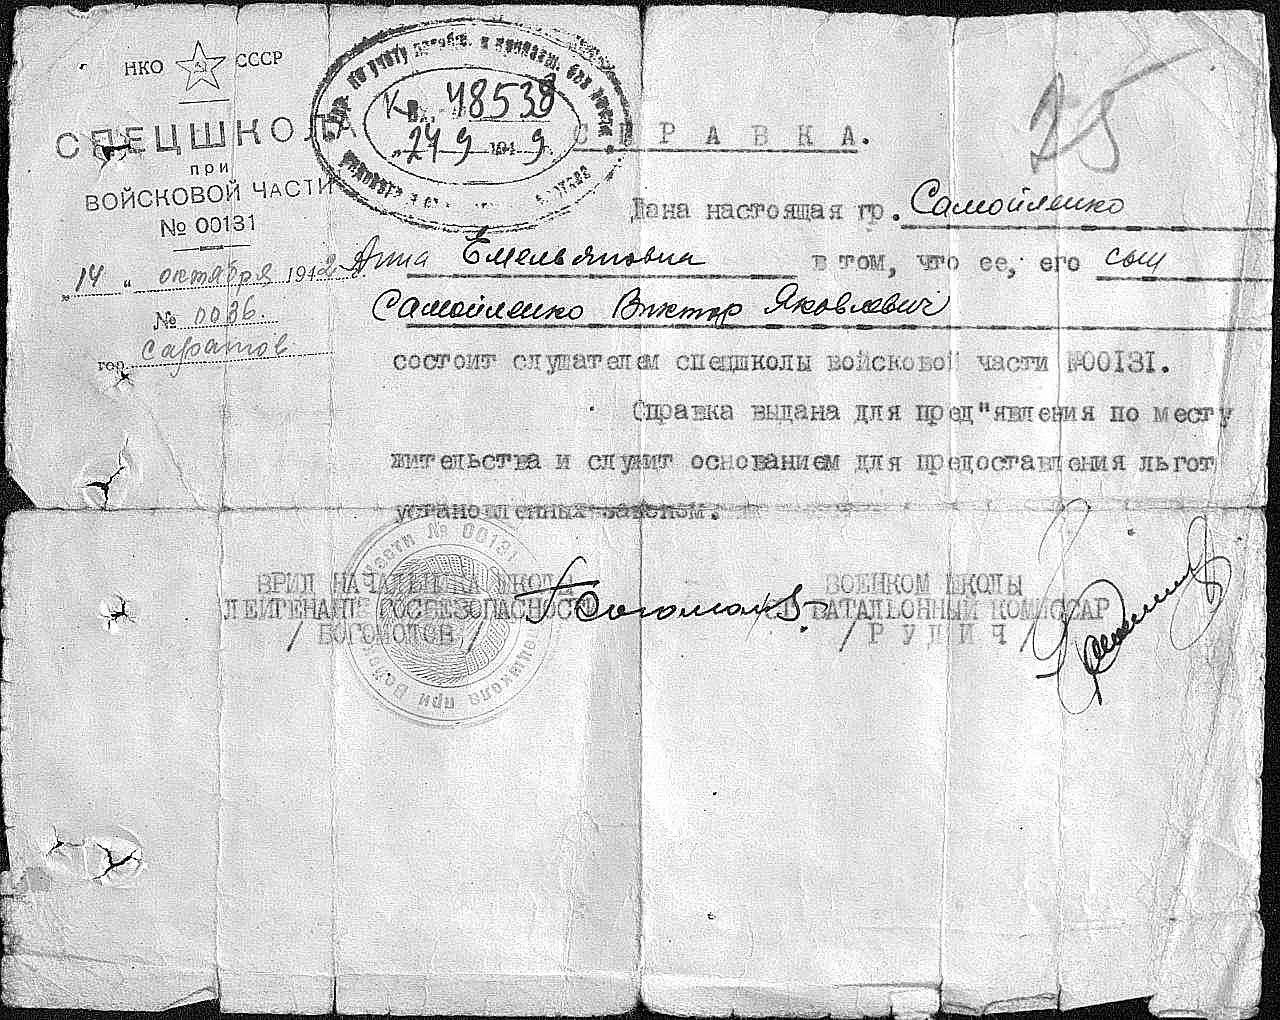 НКО СССР
СПЕЦШКОЛА
при
ВОЙСКОВОЙ ЧАСТИ
№ 00131
„14" октября 1942 г.
№ 0036.
гор. Саратов
по учету погибш. и пропавш. без вести
Вх. 48538
"24 9 1949
25
СПРАВКА.
Дана настоящая гр. Самойленко
Анна Емельяновна в том, что ее, его сын
Самойленко Виктор Яковлевич
состоит слушателем спецшколы войсковой части №00131.
Справка выдана для пред"явления по месту
жительства и служит основанием для предоставления льгот
установленных законом.
ВРИД НАЧАЛЬНИКА ШКОЛЫ
ЛЕЙТЕНАНТ ГОСБЕЗОПАСНОСТИ
/ БОГОМОЛОВ /
ВОЕНКОМ ШКОЛЫ
СТ БАТАЛЬОННЫЙ КОМИССАР
/ РУДИЧ /
Спецшкола при Войсковой части № 00131